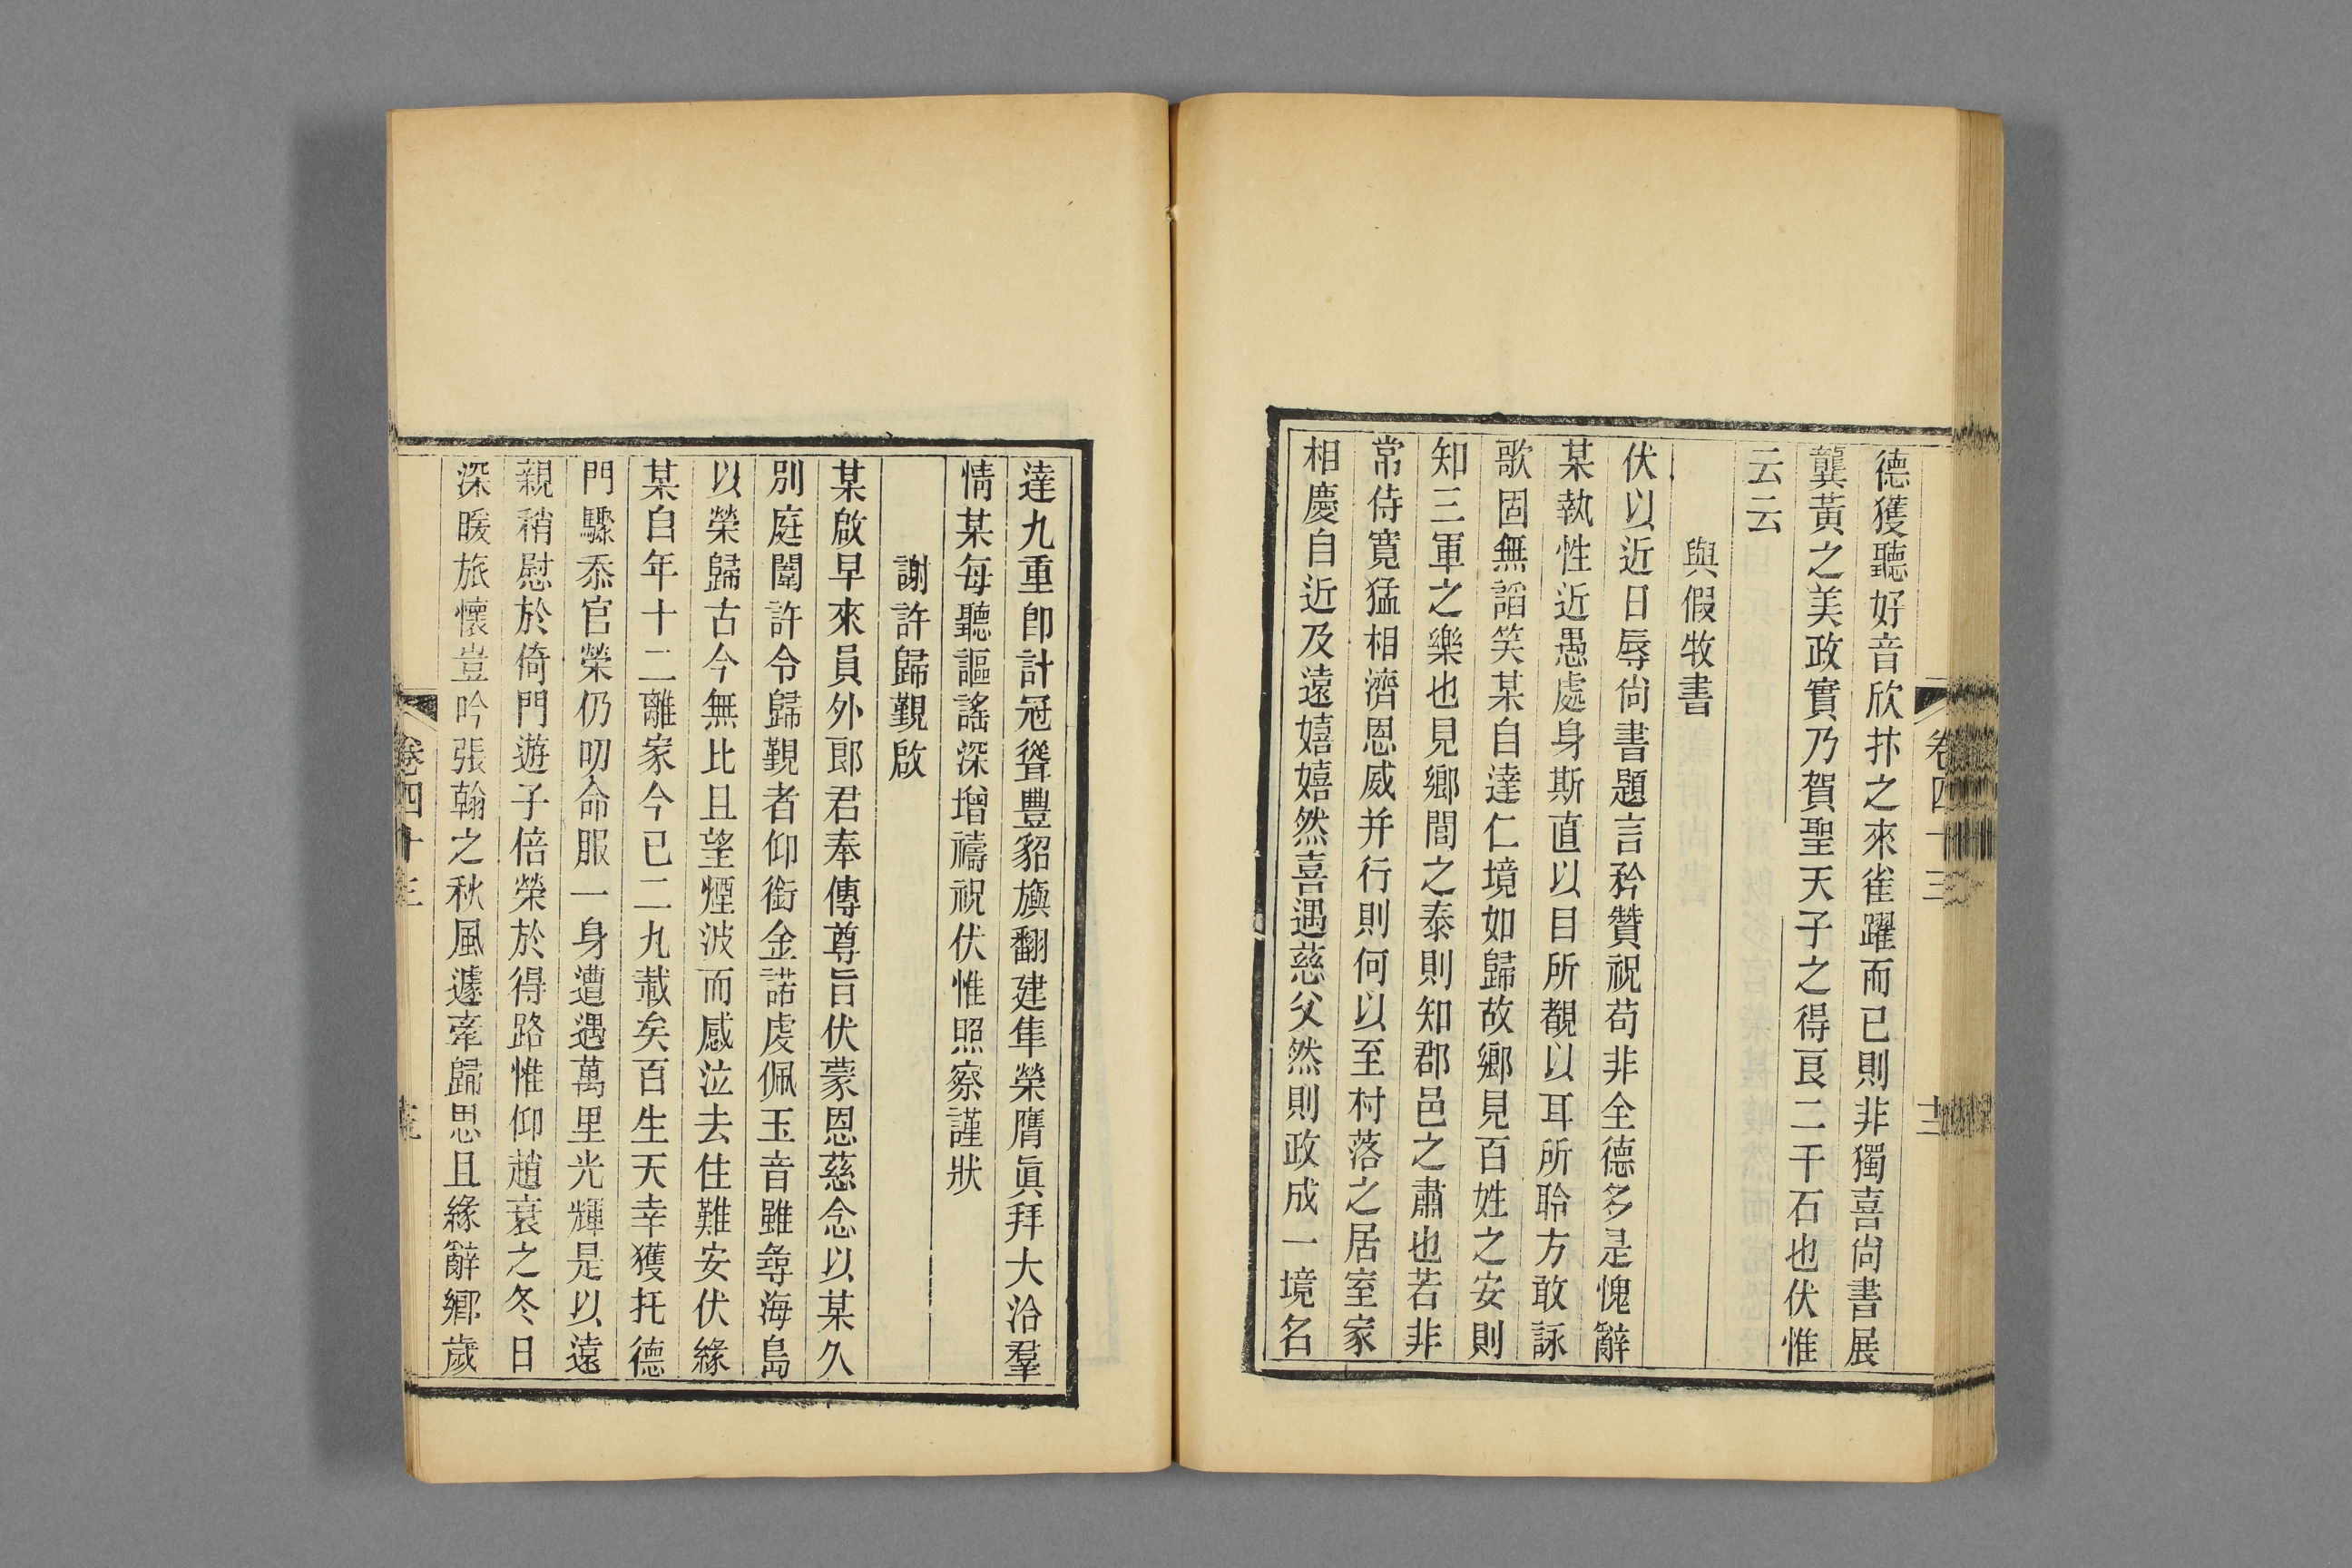 德獲聽好音欣抃之來雀躍而已則非獨喜尙書展
龔黃之美政實乃賀聖天子之得良二千石也伏惟
云云
與假牧書
伏以近日辱尙書題言矜贊祝苟非全德多是愧辭
某執性近愚處身斯直以目所覩以耳所聆方敢詠
歌固無謟笑某自達仁境如歸故鄉見百姓之安則
知三軍之樂也見鄉閭之泰則知郡邑之肅也若非
常侍寬猛相濟恩威并行則何以至村落之居室家
相慶自近及遠嬉嬉然喜遇慈父然則政成一境名
卷四十三
十三
達九重卽計冠聳豐貂旟翻建隼榮膺眞拜大洽羣
情某每聽謳謠深增禱祝伏惟照察謹狀
謝許歸覲啟
某啟早來員外郎君奉傳尊旨伏蒙恩慈念以某久
別庭闈許令歸覲者仰銜金諾虔佩玉音雖尋海島
以榮歸古今無比且望煙波而感泣去住難安伏緣
某自年十二離家今已二九載矣百生天幸獲托德
門驟忝官榮仍叨命服一身遭遇萬里光輝是以遠
親稍慰於倚門遊子倍榮於得路惟仰趙衰之冬日
深暖旅懷豈吟張翰之秋風遽牽歸思且緣辭鄉歲
卷四十三